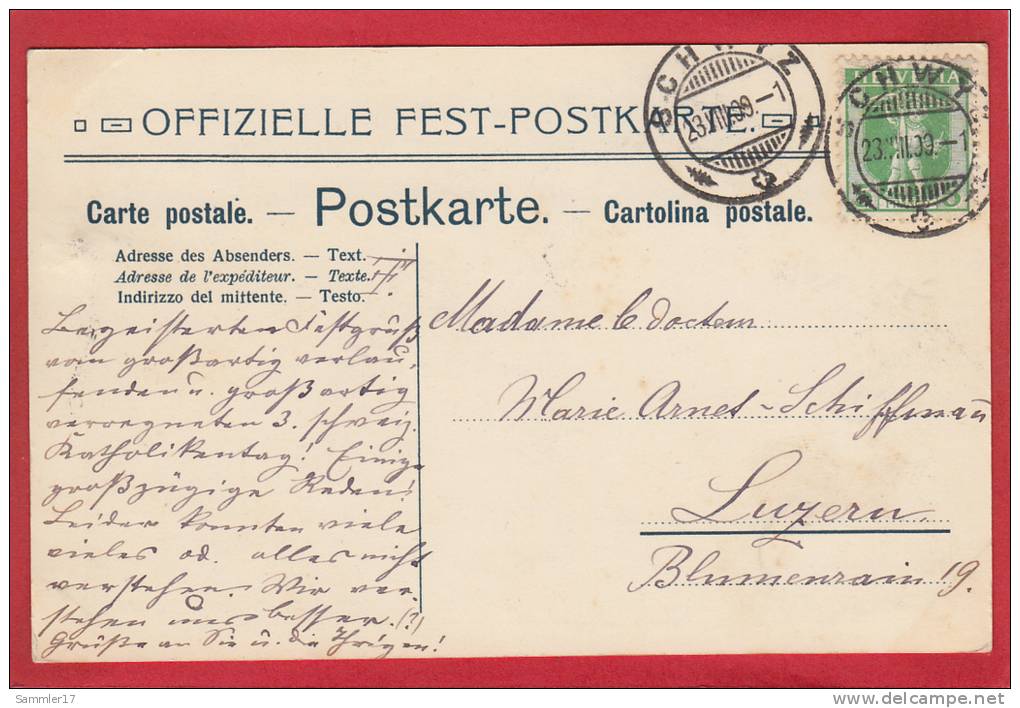 OFFIZIELLE FEST-POSTKARTE.
SCHWYZ
23.VIII.09.-1
HELVETIA
SCHWYZ
23.VIII.09.-1
Carte postale. — Postkarte. — Cartolina postale.
Adresse des Absenders. — Text.
Adresse de l'expéditeur. — Texte.
Indirizzo del mittente. — Testo.
Begeisterten Festgruß
vom großartig verlau-
fenden u. großartig
verregneten 3. schweiz.
Katholikentag! Einige
großzügige Reden!
Leider konnten viele
vieles od. alles nicht
verstehen. Wir ver-
stehen uns besser. (?)
Grüße an Sie u. die Ihrigen!
Madame le docteur
Marie Arnet-Schiffmann
Luzern.
Blumenrain 19.
Sammler17
www.delcampe.net